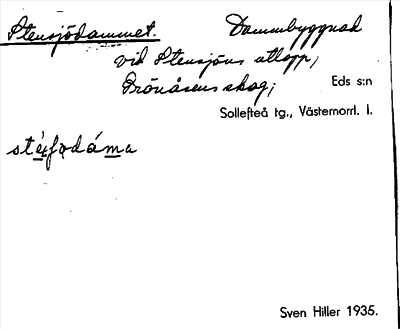 Stensjödammet. Dammbyggnad
vid Stensjöns utlopp,
Grönåsens skog; Eds s:n
Sollefteå tg., Västernorrl. l.
Sven Hiller 1935.